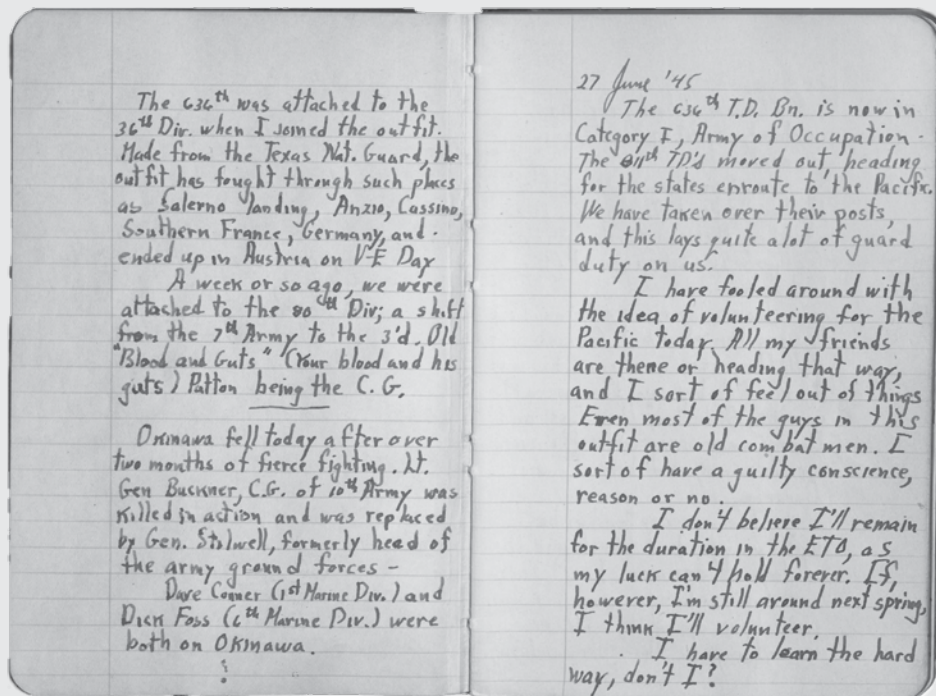 The 636th was attached to the
36th Div. when I joined the outfit.
Made from the Texas Nat. Guard, the
outfit has fought through such places
as Salerno landing, Anzio, Cassino,
Southern France, Germany, and
ended up in Austria on V-E Day
A week or so ago, we were
attached to the 80th Div; a shift
from the 7th Army to the 3'd. Old
"Blood and Guts" (Your blood and his
guts) Patton being the C.G.
Okinawa fell today after over
two months of fierce fighting. Lt.
Gen Buckner, C.G. of 10th Army was
killed in action and was replaced
by Gen. Stilwell, formerly head of
the army ground forces -
Dave Conner (1st Marine Div.) and
Dick Foss (6th Marine Div.) were
both on Okinawa.
27 June '45
The 636th T.D. Bn. is now in
Category I, Army of Occupation.
The TD's moved out heading
for the states enroute to the Pacific.
We have taken over their posts,
and this lays quite a lot of guard
duty on us.
I have fooled around with
the idea of volunteering for the
Pacific today. All my friends
are there or heading that way,
and I sort of feel out of things
Even most of the guys in this
outfit are old combat men. I
sort of have a guilty conscience,
reason or no.
I don't believe I'll remain
for the duration in the ETO, as
my luck can't hold forever. If,
however, I'm still around next spring,
I think I'll volunteer.
I have to learn the hard
way, don't I?